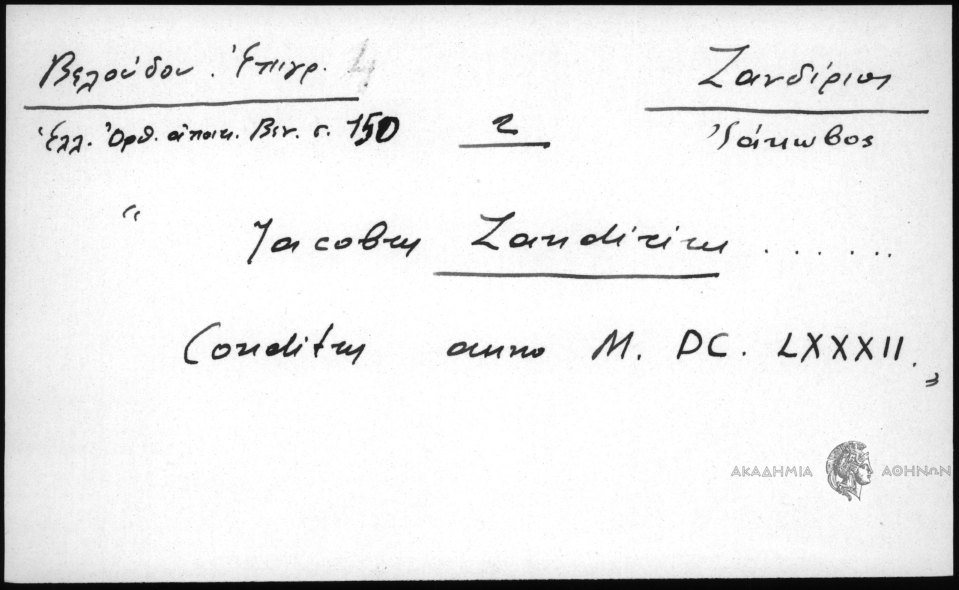 Βελούδου. Ἐπιγρ. 4
Ζανδίριος
Ἑλλ. Ὀρθ. ἀποικ. Βεν. σ. 150
2
Ἰάκωβος
“ Jacobus Zandirius ......
Conditus anno M. DC. LXXXII. ”
ΑΚΑΔΗΜΙΑ ΑΘΗΝΩΝ